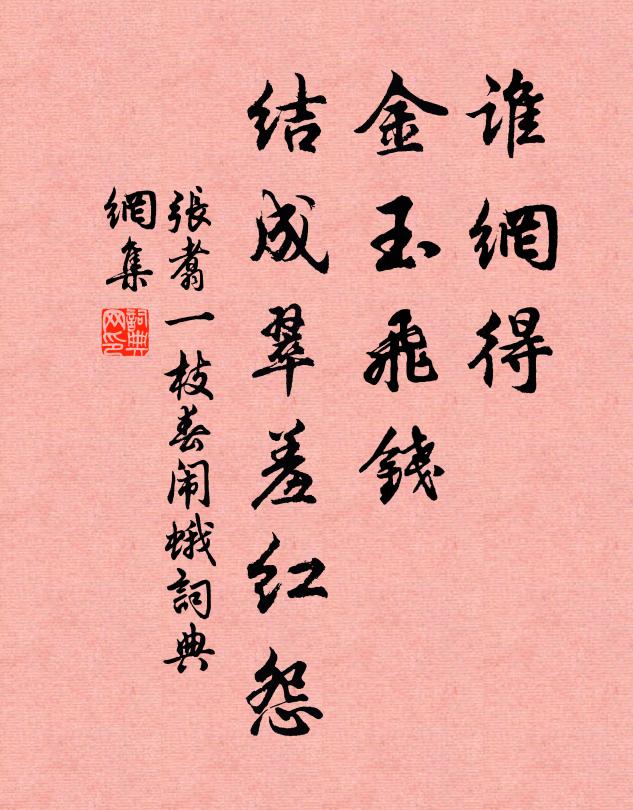 誰網得
金玉飛錢
結成翠羞紅怨
張翥一枝春闹蛾詞典
網集
詞典
网印